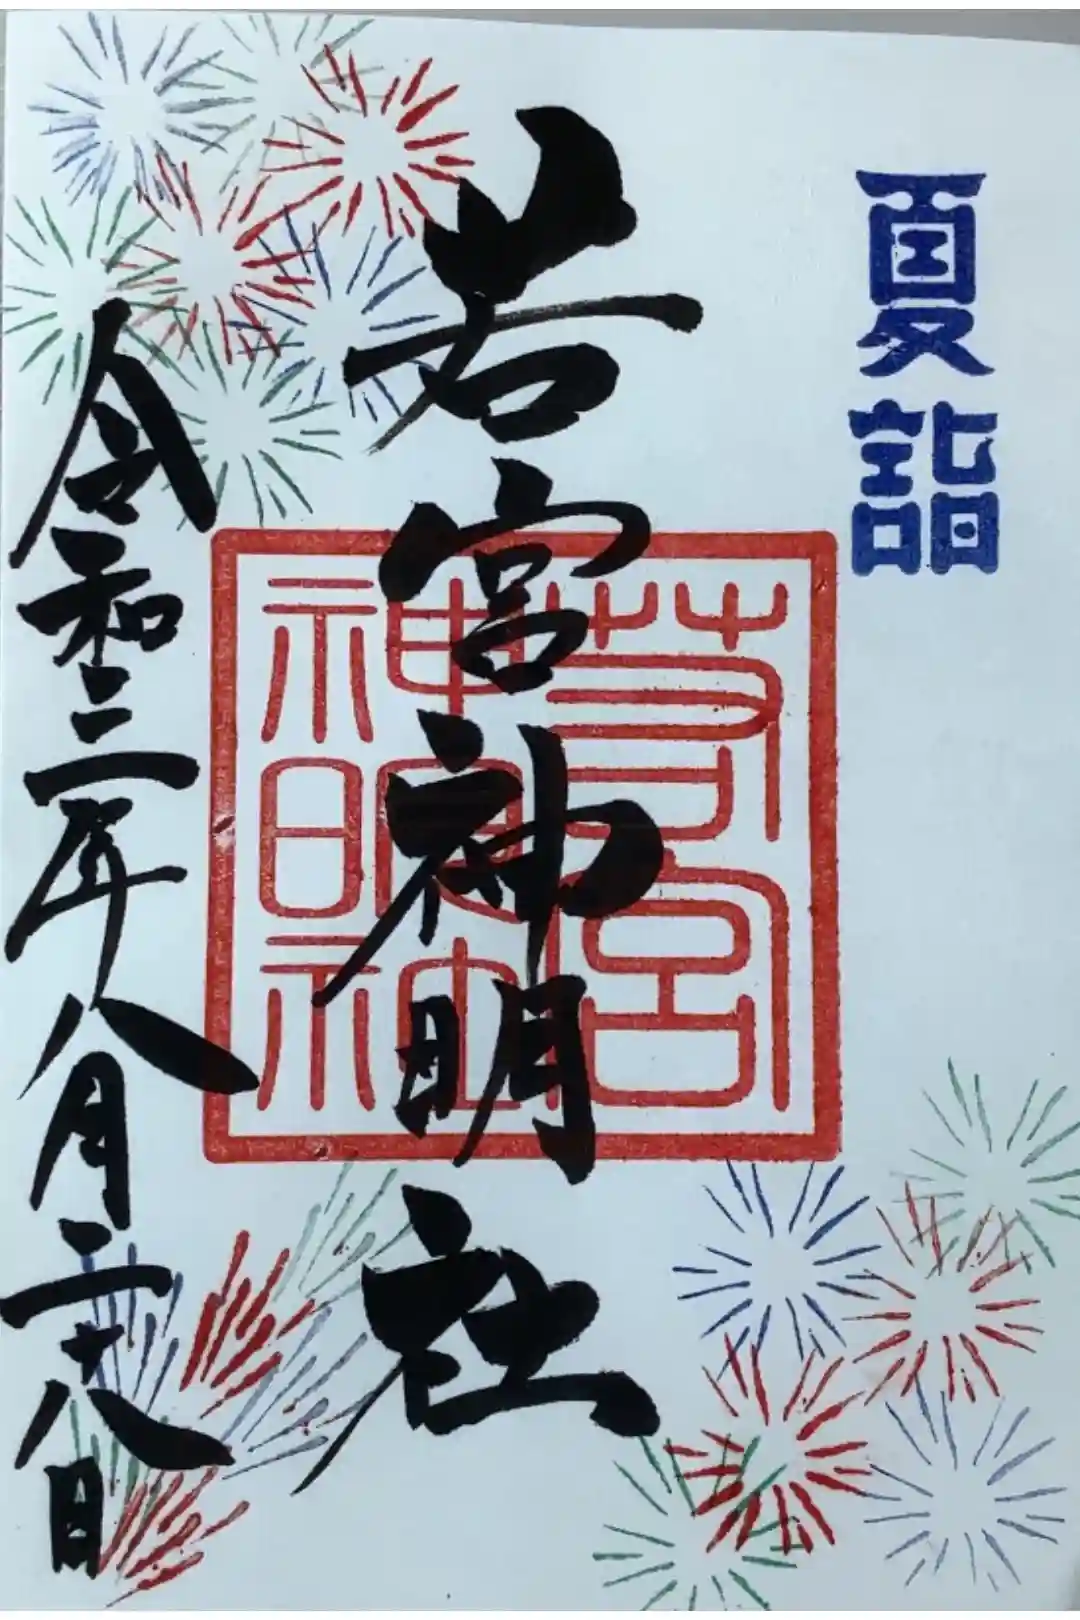 夏詣
若宮神明社
若宮
神明社
令和三年八月二十八日